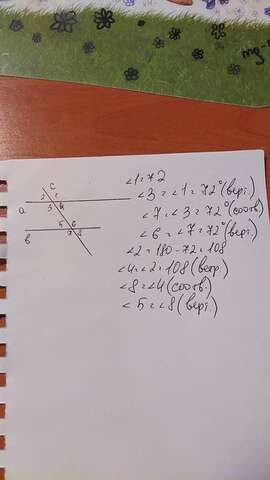 mg-
∠1=72
∠3=∠1=72°(верт.)
∠7=∠3=72°(соотв.)
∠6=∠7=72°(верт.)
∠2=180-72=108
∠4=∠2=108(верт.)
∠8=∠4(соотв.)
∠5=∠8(верт.)
c
2 1
a
3 4
5 6
в
7 8